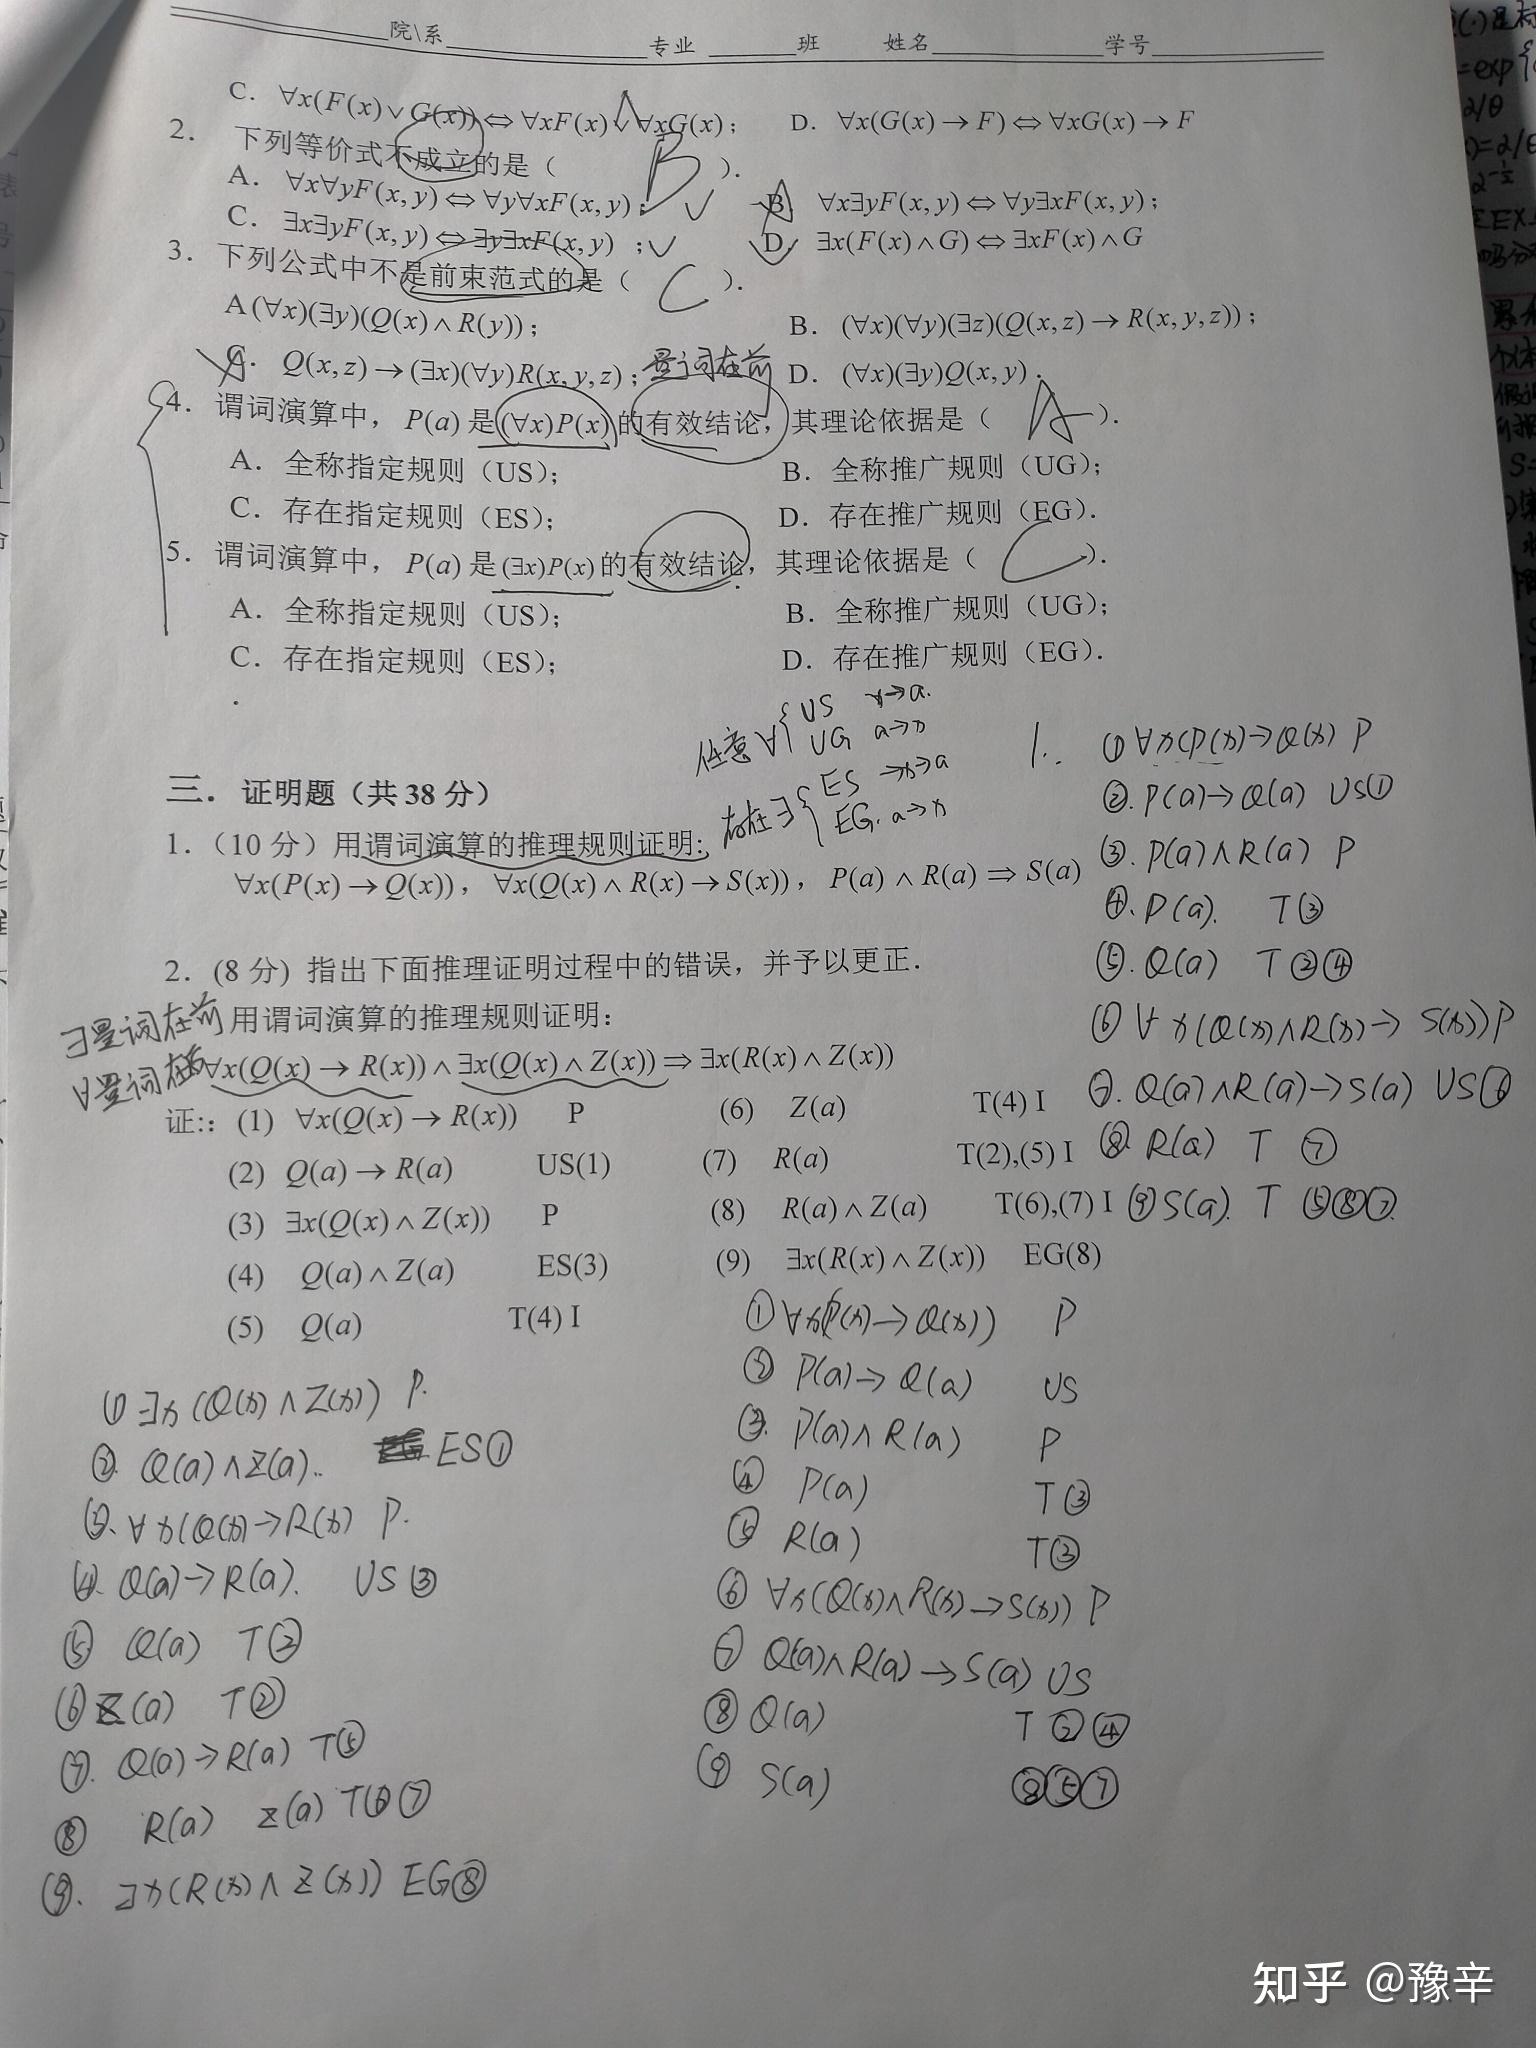 院\系 专业 班 姓名 学号
C. ∀x(F(x)∨G(x))⇔∀xF(x)∨∀xG(x); D. ∀x(G(x)→F)⇔∀xG(x)→F
2. 下列等价式不成立的是( B ).
A. ∀x∀yF(x,y)⇔∀y∀xF(x,y); √ B. ∀x∃yF(x,y)⇔∀y∃xF(x,y);
C. ∃x∃yF(x,y)⇔∃y∃xF(x,y) ; √ D. ∃x(F(x)∧G)⇔∃xF(x)∧G
3. 下列公式中不是前束范式的是( C ).
A (∀x)(∃y)(Q(x)∧R(y)); B. (∀x)(∀y)(∃z)(Q(x,z)→R(x,y,z));
C. Q(x,z)→(∃x)(∀y)R(x,y,z); 量词在前 D. (∀x)(∃y)Q(x,y).
4. 谓词演算中, P(a)是(∀x)P(x)的有效结论, 其理论依据是( A ).
A. 全称指定规则(US); B. 全称推广规则(UG);
C. 存在指定规则(ES); D. 存在推广规则(EG).
5. 谓词演算中, P(a)是(∃x)P(x)的有效结论, 其理论依据是( C ).
A. 全称指定规则(US); B. 全称推广规则(UG);
C. 存在指定规则(ES); D. 存在推广规则(EG).
.
任意∀{ US x→a.
UG a→x
存在∃{ ES x→a
EG. a→x
三. 证明题(共 38 分)
1. (10 分)用谓词演算的推理规则证明:
∀x(P(x)→Q(x)), ∀x(Q(x)∧R(x)→S(x)), P(a)∧R(a)⇒S(a)
1. ① ∀x(P(x)→Q(x) P
②. P(a)→Q(a) US①
③. P(a)∧R(a) P
④. P(a). T③
⑤. Q(a) T②④
⑥ ∀x(Q(x)∧R(x)→S(x)) P
⑦. Q(a)∧R(a)→S(a) US⑥
⑧. R(a) T ⑦
⑨ S(a). T ⑤⑧⑦.
2. (8 分) 指出下面推理证明过程中的错误, 并予以更正.
用谓词演算的推理规则证明:
∃量词在前
∀量词在后
∀x(Q(x)→R(x))∧∃x(Q(x)∧Z(x))⇒∃x(R(x)∧Z(x))
证:: (1) ∀x(Q(x)→R(x)) P (6) Z(a) T(4) I
(2) Q(a)→R(a) US(1) (7) R(a) T(2),(5) I
(3) ∃x(Q(x)∧Z(x)) P (8) R(a)∧Z(a) T(6),(7) I
(4) Q(a)∧Z(a) ES(3) (9) ∃x(R(x)∧Z(x)) EG(8)
(5) Q(a) T(4) I
① ∃x(Q(x)∧Z(x)) P.
②. Q(a)∧Z(a).. ES①
③. ∀x(Q(x)→R(x) P.
④. Q(a)→R(a). US③
⑤ Q(a) T②
⑥ Z(a) T②
⑦. Q(a)→R(a) T⑤
⑧ R(a) Z(a) T⑥⑦
⑨. ∃x(R(x)∧Z(x)) EG⑧
① ∀x(P(x)→Q(x)) P
② P(a)→Q(a) US
③. P(a)∧R(a) P
④ P(a) T③
⑤ R(a) T③
⑥ ∀x(Q(x)∧R(x)→S(x)) P
⑦ Q(a)∧R(a)→S(a) US
⑧ Q(a) T②④
⑨ S(a) ⑧⑤⑦
知乎 @豫辛